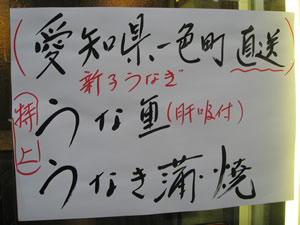 (愛知県、一色町直送)
新子うなぎ
特上 うな重(肝吸付)
うなぎ蒲焼